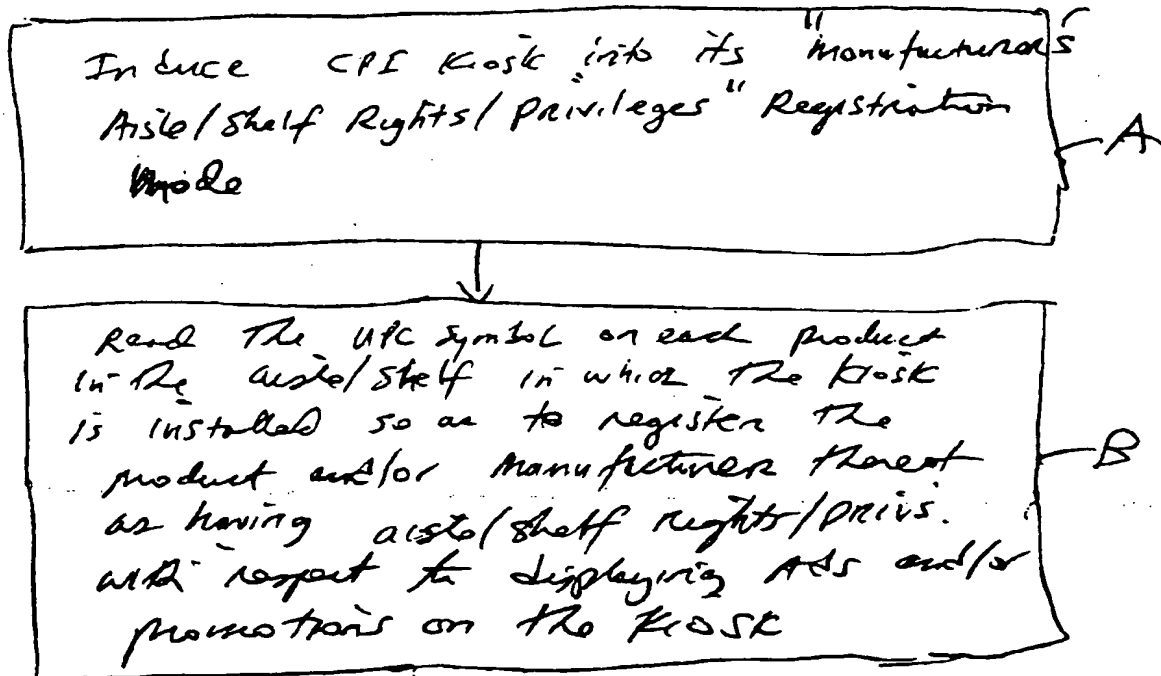 Induce CPI Kiosk into its "Manufacturer's
Aisle/Shelf Rights/Privileges" Registration
Mode
A
Read The UPC Symbol on each product
in the aisle/shelf in which the kiosk
is installed so as to register the
product and/or manufacturer thereof
as having aisle/shelf rights/privs.
with respect to displaying Ads and/or
promotions on the Kiosk
B